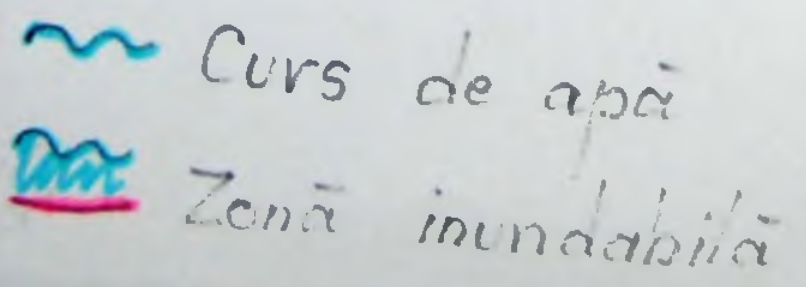 Curs de apă
Zonă inundabilă